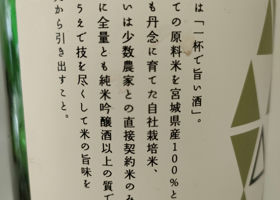 は「一杯で旨い酒」。
ての原料米を宮城県産100%と
も丹念に育てた自社栽培米、
いは少数農家との直接契約米のみ
に全量とも純米吟醸酒以上の質で
うえで技を尽くして米の旨味を
から引き出すこと。